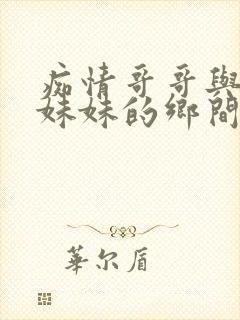 痴情哥哥與
妹妹的鄉間
華尔盾